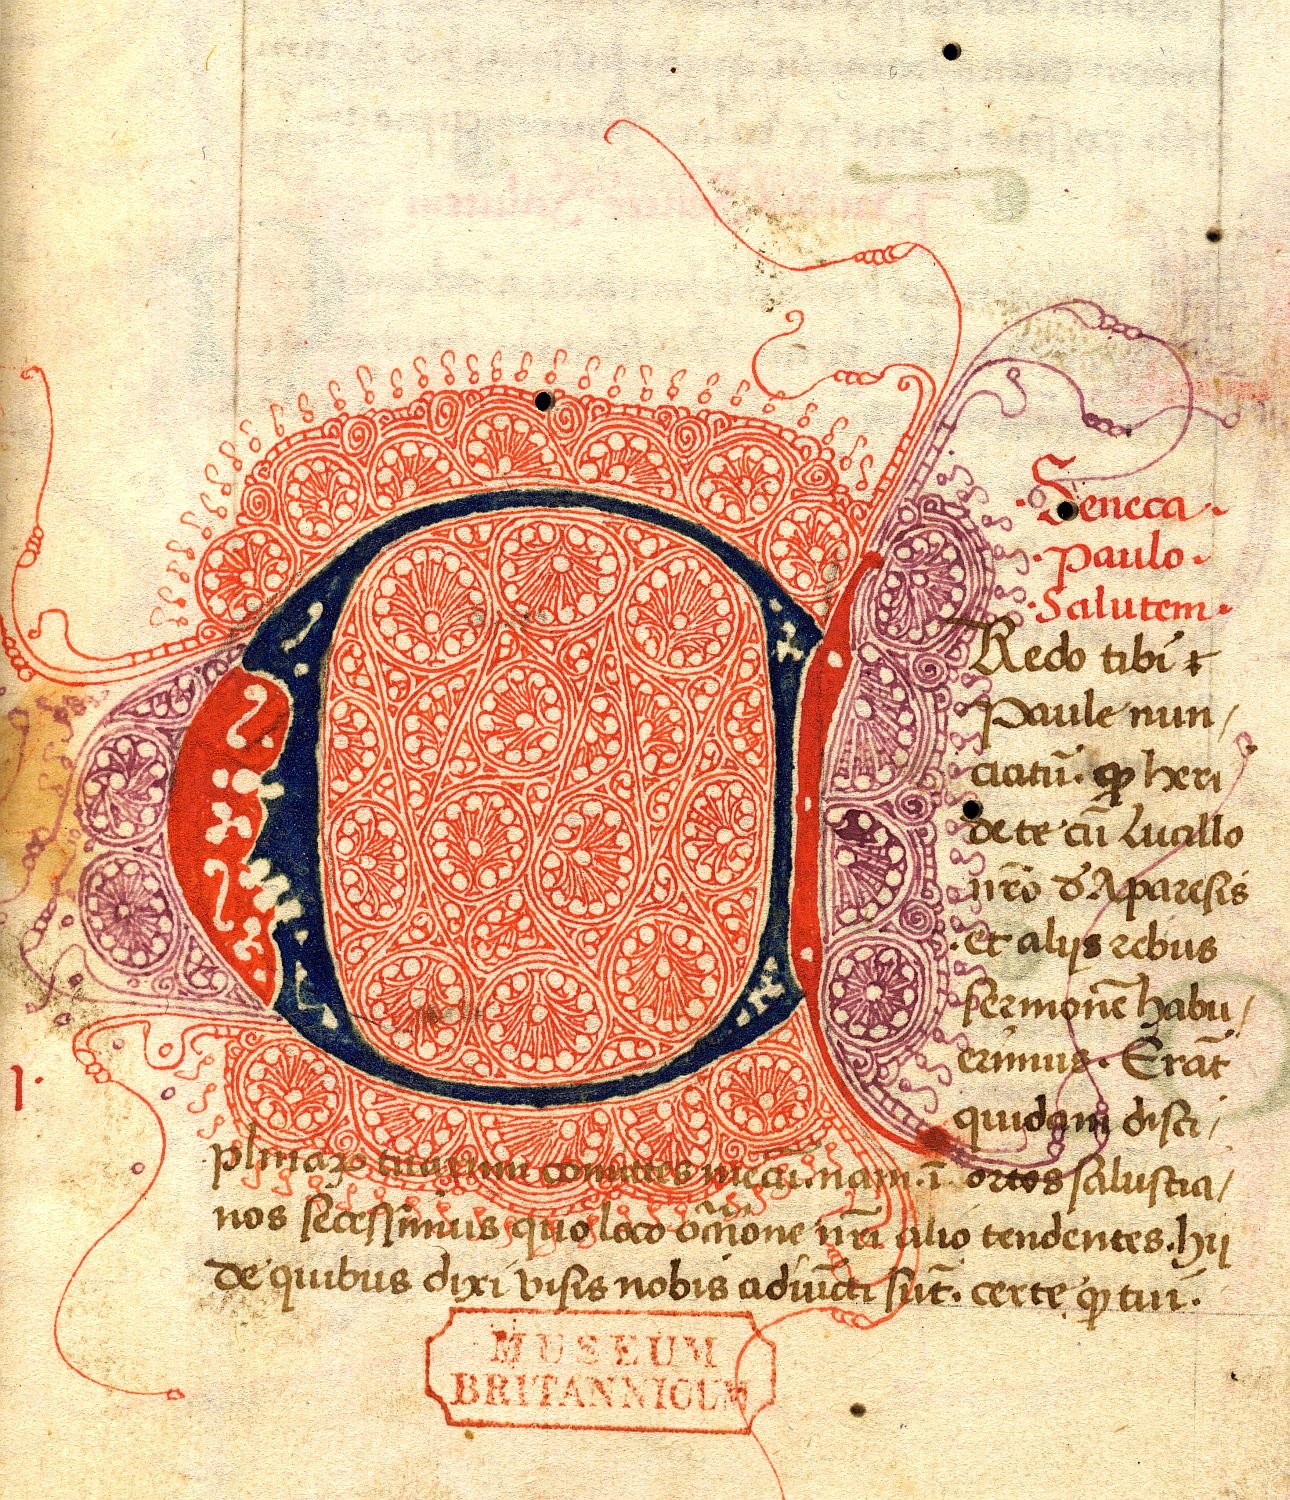 ·Seneca·
·paulo·
·Salutem·
CRedo tibi ⁊
Paule nun/
ciatū· ꝙ heri
de te cū Lucillo
nr̄o d' Aparesis
·et alijs rebus
sermonē habu/
erimus· Erāt
quidam disci/
plinaꝝ tuarum comites mecū· nam· ī· ortos salustia/
nos secessimus quo loco occasione nr̄i alio tendentes· hij
de quibus dixi visis nobis adiūcti sūt· certe ꝙ tui·
I·
MUSEUM
BRITANNICUM